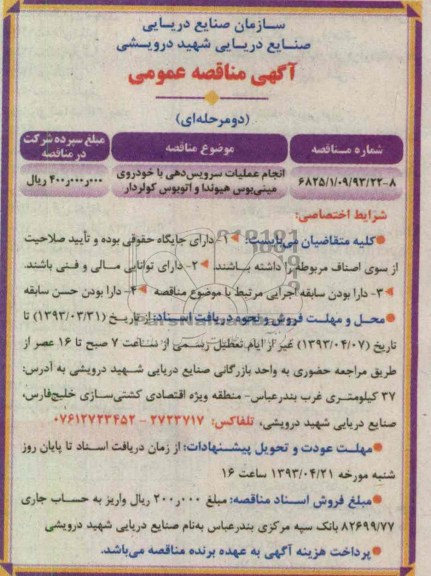 سازمان صنایع دریایی
صنایع دریایی شهید درویشی
آگهی مناقصه عمومی
(دومرحله‌ای)
شماره مناقصه
موضوع مناقصه
مبلغ سپرده شرکت در مناقصه
۶۸۳۵/۱/۰۹/۹۳/۲۲-۸
انجام عملیات سرویس‌دهی با خودروی
مینی‌بوس هیوندا و اتوبوس کولردار
۴۰۰ر۰۰۰ر۰۰۰ ریال
شرایط اختصاصی:
●کلیه متقاضیان می‌بایست: ◄۱- دارای جایگاه حقوقی بوده و تأیید صلاحیت
از سوی اصناف مربوطه را داشته باشند. ◄۲- دارای توانایی مالی و فنی باشند.
◄۳- دارا بودن سابقه اجرایی مرتبط با موضوع مناقصه ◄۴- دارا بودن حسن سابقه
●محل و مهلت فروش و نحوه دریافت اسناد: از تاریخ (۱۳۹۳/۰۳/۳۱) تا
تاریخ (۱۳۹۳/۰۴/۰۷) غیر از ایام تعطیل رسمی از ساعت ۷ صبح تا ۱۶ عصر از
طریق مراجعه حضوری به واحد بازرگانی صنایع دریایی شهید درویشی به آدرس:
۳۷ کیلومتری غرب بندرعباس- منطقه ویژه اقتصادی کشتی‌سازی خلیج‌فارس،
صنایع دریایی شهید درویشی، تلفاکس: ۲۷۲۳۷۱۷ - ۰۷۶۱۲۷۲۳۴۵۲
●مهلت عودت و تحویل پیشنهادات: از زمان دریافت اسناد تا پایان روز
شنبه مورخه ۱۳۹۳/۰۴/۲۱ ساعت ۱۶
●مبلغ فروش اسناد مناقصه: مبلغ ۲۰۰ر۰۰۰ ریال واریز به حساب جاری
۸۲۶۹۹/۷۷ بانک سپه مرکزی بندرعباس به‌نام صنایع دریایی شهید درویشی
●پرداخت هزینه آگهی به عهده برنده مناقصه می‌باشد.